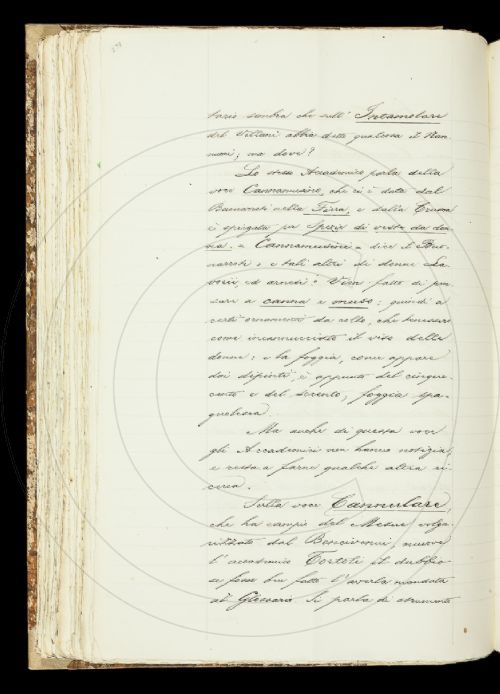 tario sembra che sull' Intamolare
del Villani abbia detto qualcosa il Nan-
nucci; ma dove?
Lo stesso Accademico parla della
voce Cannamusino, che ci è data dal
Buonarroti nella Fiera, e dalla Crusca
è spiegata per Spezie di veste da don-
na. = Cannamusini = dice il Buo-
narroti = e tali altri di donne la-
vorii ed arnesi: Vien fatto di pen-
sare a canna e muso: quindi a
certi ornamenti da collo, che tenessero
come incannucciato il viso delle
donne: e la foggia, come appare
dai dipinti, è appunto del cinque-
cento e del secento, foggia spa-
gnolesca.
Ma anche di questa voce
gli Accademici non hanno notizia,
e resta a farne qualche altra ri-
cerca.
Sulla voce Cannulare,
che ha esempio del Mesue volga-
rizzato dal Bencivenni, muove
l' accademico Tortoli il dubbio
se fosse ben fatto l' averla mandata
al Glossario. Si parla di strumento